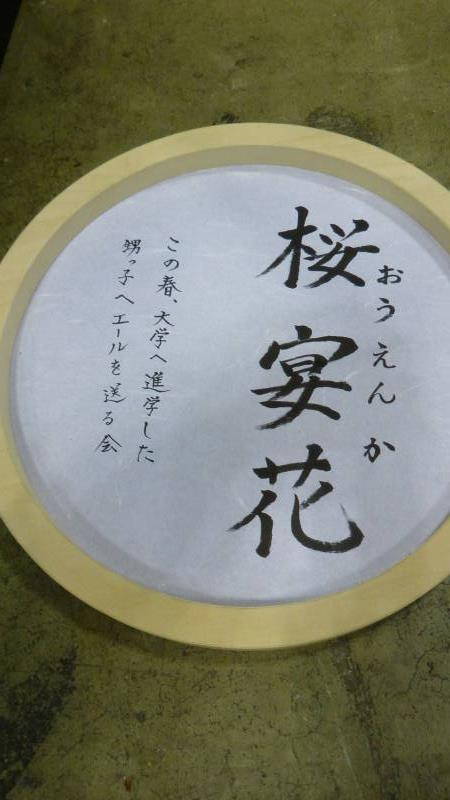 桜宴花
おうえんか
この春、大学へ進学した
甥っ子へエールを送る会